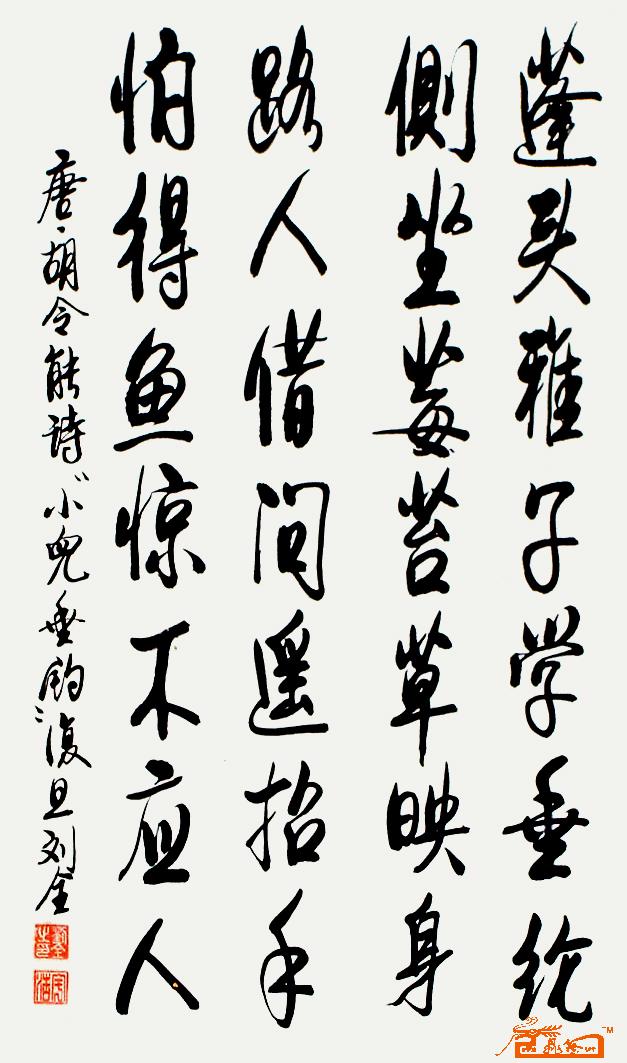 蓬头稚子学垂纶
侧坐莓苔草映身
路人借问遥招手
怕得鱼惊不应人
唐·胡令能诗"小儿垂钓"复旦刘全